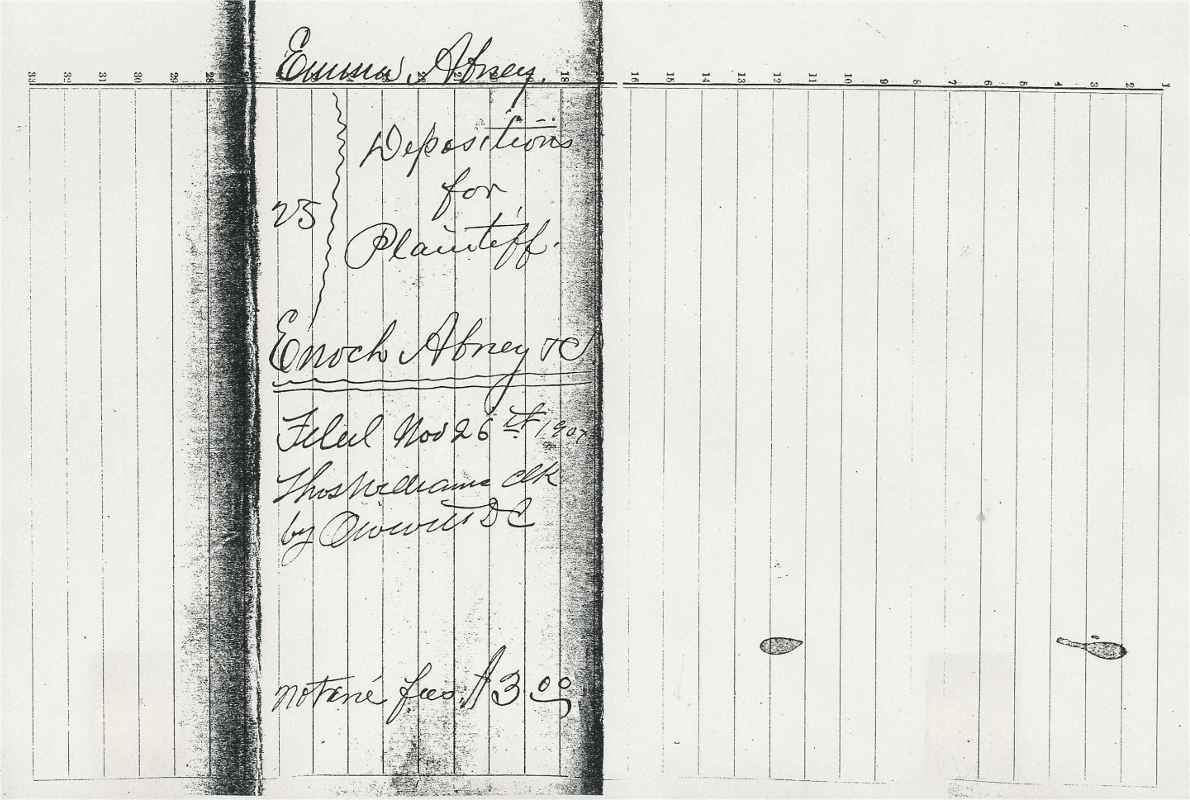 Emma Abney.
Depositions
for
vs
Plaintiff.
Enoch Abney &C.
Filed Nov 26th 1907
Thos Williams Clk
by DC
Notarie fees $3.00
33 32 31 30 29 28 18 16 15 14 13 12 11 10 9 8 7 6 5 4 3 2 1